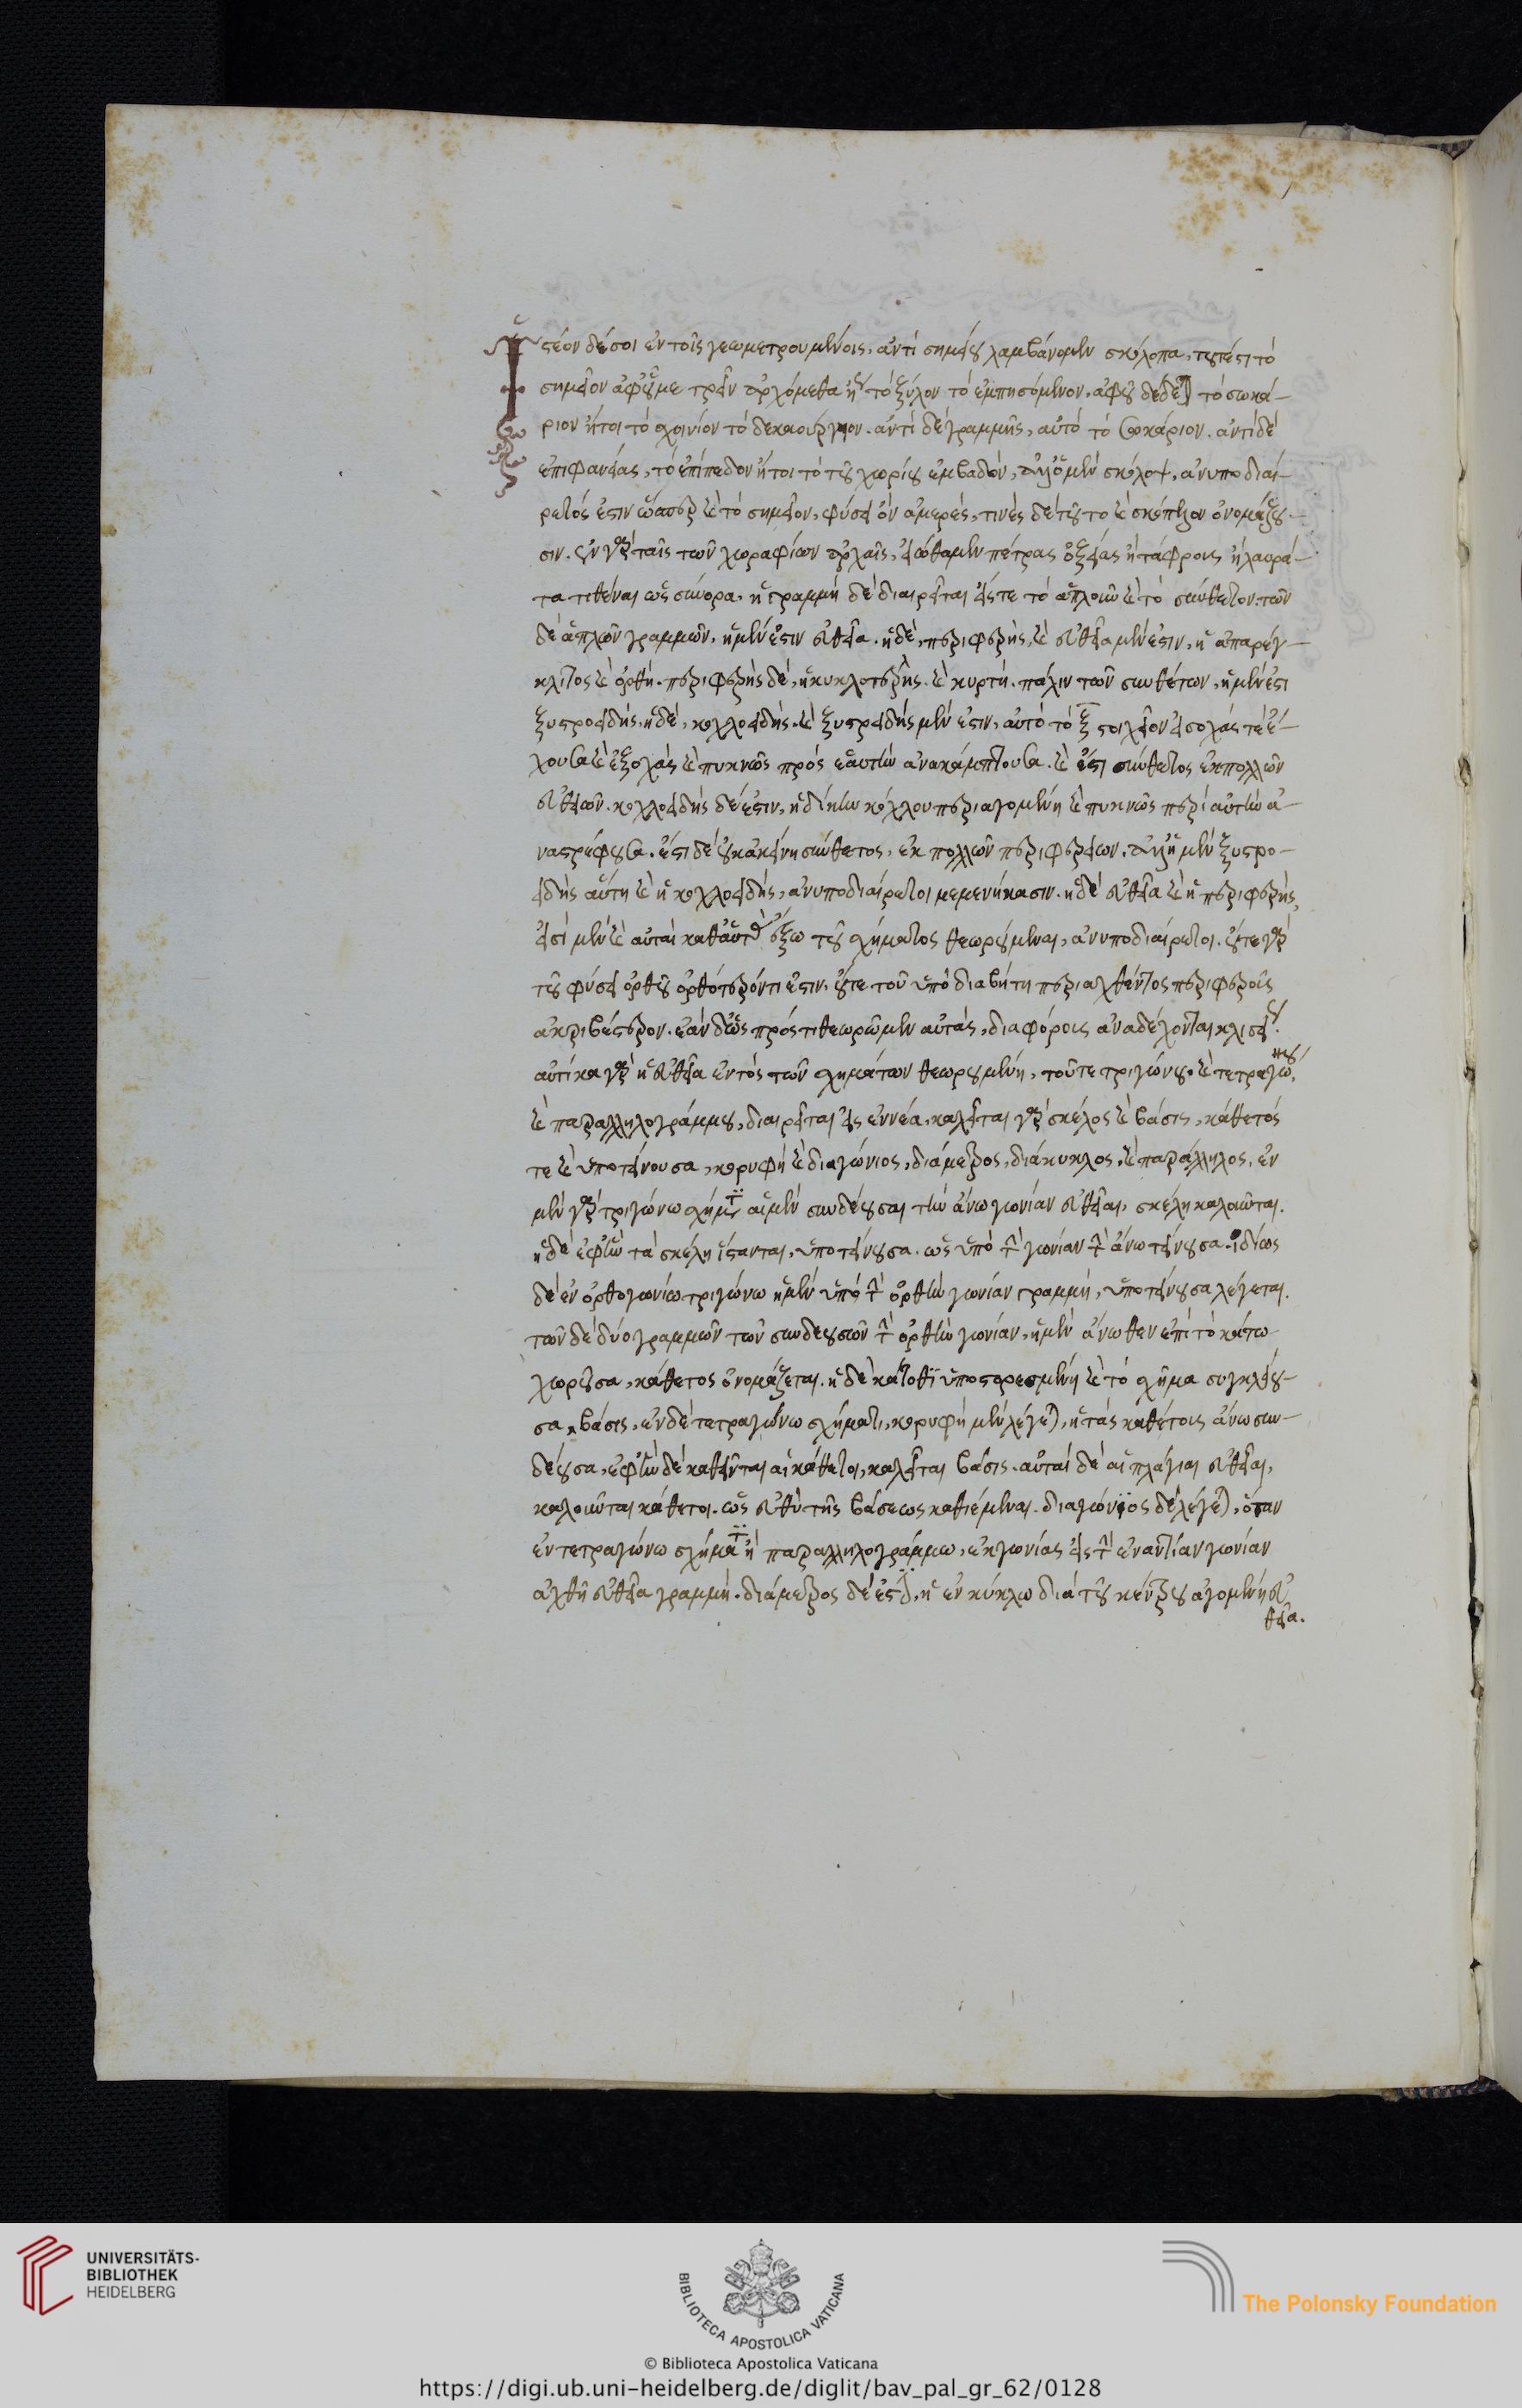 Ἰστέον δέ σοι ἐν τοῖς γεωμετρουμένοις, ἀντὶ σημείου λαμβάνομεν σκόλοπα, τουτέστι τὸ
σημεῖον ἀφ' οὗ με τρεῖν ἀρχόμεθα ἢ τὸ ξύλον τὸ ἐμπησόμενον. ἀφ' οὗ δέδεται τὸ σωκά-
ριον ἤτοι τὸ σχοινίον τὸ δεκαούργιον. ἀντὶ δὲ γραμμῆς, αὐτὸ τὸ σωκάριον. ἀντὶ δὲ
ἐπιφανείας, τὸ ἐπίπεδον ἤτοι τὸ τοῦ χωρίου ἐμβαδόν, ἀλλ' ὁ μὲν σκόλοψ, ἀνυποδιαί-
ρετός ἐστιν ὥσπερ καὶ τὸ σημεῖον, φύσει ὂν ἀμερές, τινὲς δὲ τοῦτο καὶ σκόπελον ὀνομάζου-
σιν. ἐν γὰρ ταῖς τῶν χωραφίων ἀρχαῖς, εἰώθαμεν πέτρας ὀξείας ἢ τάφρους ἢ λαυρά-
τα τιθέναι ὡς σύνορα, ἡ γραμμὴ δὲ διαιρεῖται εἴς τε τὸ ἁπλοῦν καὶ τὸ σύνθετον. τῶν
δὲ ἁπλῶν γραμμῶν, ἡ μέν ἐστιν εὐθεῖα. ἡ δὲ, περιφερής, καὶ εὐθεῖα μέν ἐστιν, ἡ ἀπαρέγ-
κλιτος καὶ ὀρθή. περιφερὴς δὲ, ἡ κυκλοτερὴς καὶ κυρτή. πάλιν τῶν συνθέτων, ἡ μέν ἐστι
ξυστροειδής, ἡ δὲ, κοχλοειδής. καὶ ξυστροειδὴς μέν ἐστιν, αὐτὸ τὸ ξ στοιχεῖον εἰσοχάς τε ἔ-
χουσα καὶ ἐξοχὰς καὶ πυκνῶς πρὸς ἑαυτὴν ἀνακάμπτουσα. καὶ ἔστι σύνθετος ἐκ πολλῶν
εὐθειῶν. κοχλοειδὴς δέ ἐστιν, ἡ δίκην κόχλου περιαγομένη καὶ πυκνῶς περὶ αὐτὴν ἀ-
ναστρέφουσα. ἔστι δὲ οὐκ ἀκείνη σύνθετος, ἐκ πολλῶν περιφερειῶν. ἀλλ' ἡ μὲν ξυστρο-
ειδὴς αὕτη καὶ ἡ κοχλοειδής, ἀνυποδιαίρετοι μεμενήκασιν. ἡ δὲ εὐθεῖα καὶ ἡ περιφερής,
εἰσὶ μὲν καὶ αὐταὶ καθ' αὑτὰς ἔξω τοῦ σχήματος θεωρούμεναι, ἀνυποδιαίρετοι. οὔτε γὰρ
τοῦ φύσει ὀρθοῦ ὀρθότερόν τι ἐστιν, οὔτε τοῦ ὑπὸ διαβήτη περιαχθέντος περιφεροῦς
ἀκριβέστερον. ἐὰν δὲ ὡς πρός τι θεωρῶμεν αὐτάς, διαφόρους ἀναδέχονται κλίσεις.
αὐτίκα γὰρ ἡ εὐθεῖα ἐντὸς τῶν σχημάτων θεωρουμένη, τοῦ τε τριγώνου καὶ τετραγώνου,
καὶ παραλληλογράμμου, διαιρεῖται εἰς ἐννέα, καλεῖται γὰρ σκέλος καὶ βάσις, κάθετός
τε καὶ ὑποτείνουσα, κορυφὴ καὶ διαγώνιος, διάμετρος, διάκυκλος, καὶ παράλληλος, ἐν
μὲν γὰρ τριγώνω σχήματι αἱ μὲν συνδέουσαι τὴν ἄνω γωνίαν εὐθεῖαι, σκέλη καλοῦνται.
ἡ δὲ ἐφ' ἣν τὰ σκέλη ἵστανται, ὑποτείνουσα. ὡς ὑπὸ τὴν γωνίαν τὴν ἄνω τείνουσα. ἰδίως
δὲ ἐν ὀρθογωνίω τριγώνω ἡ μὲν ὑπὸ τὴν ὀρθὴν γωνίαν γραμμή, ὑποτείνουσα λέγεται.
τῶν δὲ δύο γραμμῶν τῶν συνδεουσῶν τὴν ὀρθὴν γωνίαν, ἡ μὲν ἄνωθεν ἐπὶ τὸ κάτω
χωροῦσα, κάθετος ὀνομάζεται. ἡ δὲ κάτωθι ὑποστορεσμένη καὶ τὸ σχῆμα συγκλείου-
σα, βάσις, ἐν δὲ τετραγώνω σχήματι, κορυφὴ μὲν λέγεται, ἡ τὰς καθέτους ἄνω συν-
δέουσα, ἐφ' ἣν δὲ καθεῖνται αἱ κάθετοι, καλεῖται βάσις. αὗται δὲ αἱ πλάγιαι εὐθεῖαι,
καλοῦνται κάθετοι. ὡς εὐθὺ τῆς βάσεως καθιέμεναι. διαγώνιος δὲ λέγεται, ὅταν
ἐν τετραγώνω σχήματι ἢ παραλληλογράμμω, ἐκ γωνίας εἰς τὴν ἐναντίαν γωνίαν
ἀχθῇ εὐθεῖα γραμμή. διάμετρος δέ ἐστιν, ἡ ἐν κύκλω διὰ τοῦ κέντρου ἀγομένη εὐ
θεῖα.
UNIVERSITÄTS-
BIBLIOTHEK
HEIDELBERG
BIBLIOTECA APOSTOLICA VATICANA
The Polonsky Foundation
© Biblioteca Apostolica Vaticana
https://digi.ub.uni-heidelberg.de/diglit/bav_pal_gr_62/0128